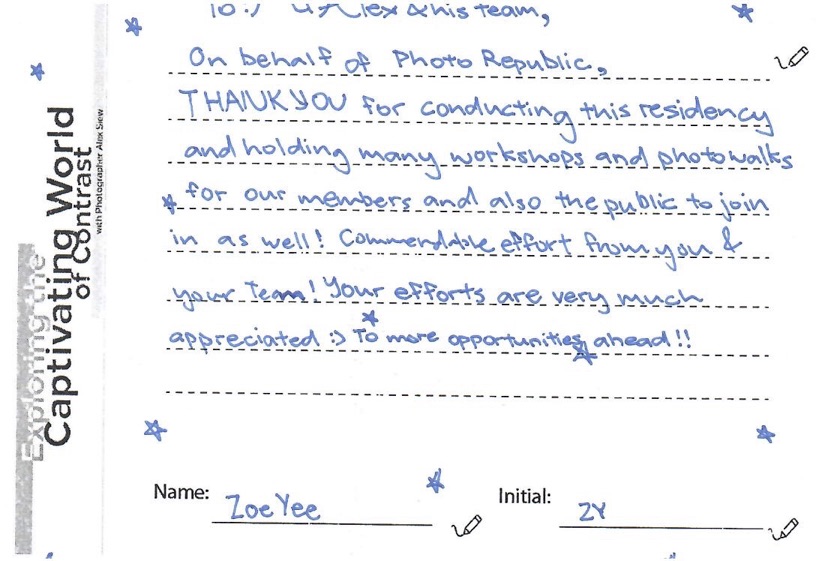 Exploring the
Captivating World
of Contrast
with Photographer Alex Siew
To :) Alex & his team,
On behalf of Photo Republic,
THANK YOU for conducting this residency
and holding many workshops and photowalks
for our members and also the public to join
in as well! Commendable effort from you &
your Team! Your efforts are very much
appreciated :) To more opportunities ahead!!
Name: Zoe Yee
Initial: ZY